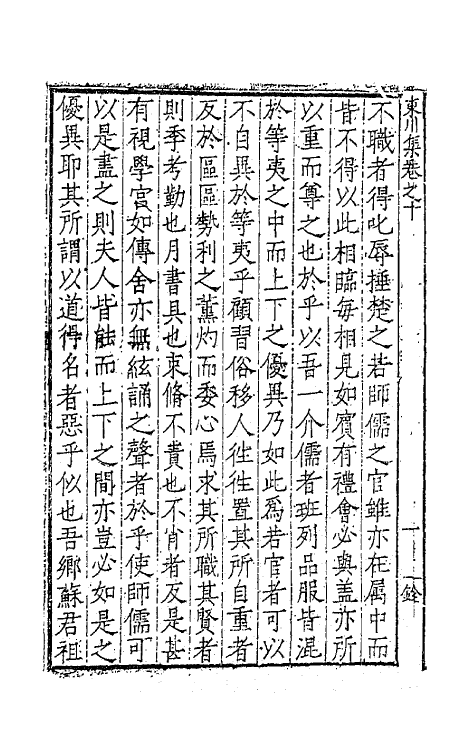 東川集卷之十
一
一銓
不職者得叱辱捶楚之若師儒之官雖亦在屬中而
皆不得以此相臨每相見如賓有禮會必與盖亦所
以重而尊之也於乎以吾一介儒者班列品服皆混
於等夷之中而上下之優異乃如此爲若官者可以
不自異於等夷乎顧習俗移人徃徃置其所自重者
反於區區勢利之薰灼而委心焉求其所職其賢者
則季考勤也月書具也束脩不責也不肖者反是甚
有視學宫如傳舍亦無絃誦之聲者於乎使師儒可
以是盡之則夫人皆能而上下之間亦豈必如是之
優異耶其所謂以道得名者惡乎似也吾鄉蘇君祖